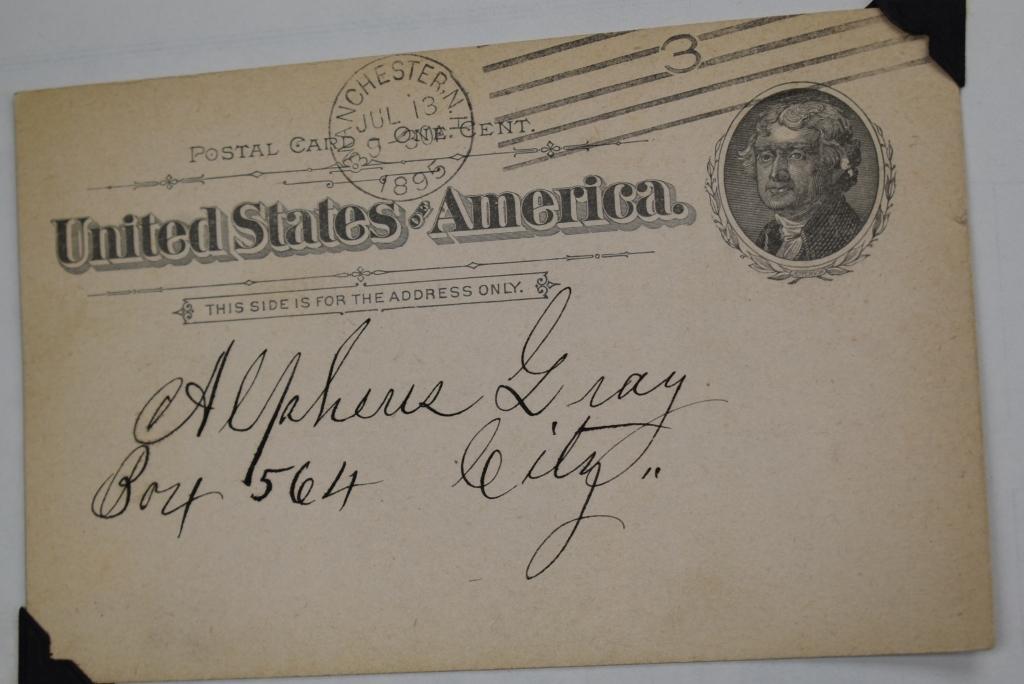 MANCHESTER, N.H.
JUL 13
1895
3
POSTAL CARD ONE CENT.
United States of America.
THIS SIDE IS FOR THE ADDRESS ONLY.
Alpheus Gray
Box 564 City"